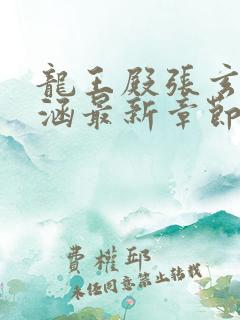 龍王殿張玄
涵最新章節
費權邱
未经同意禁止转载